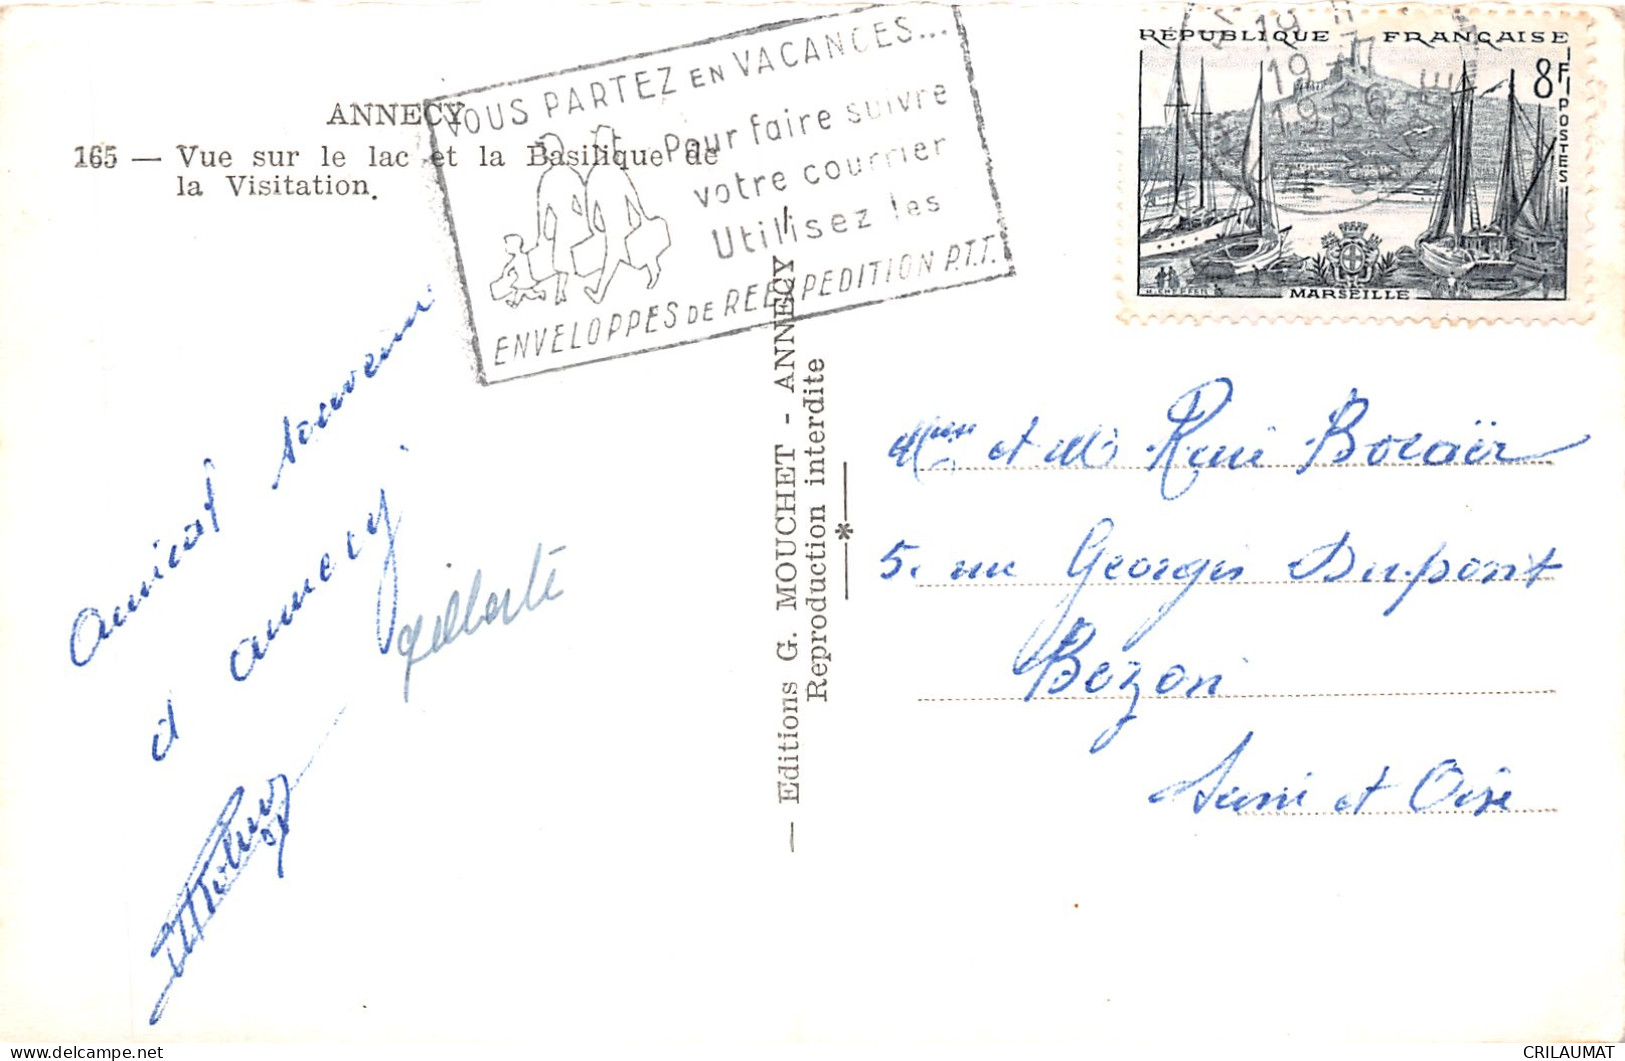 ANNECY
165 — Vue sur le lac et la Basilique de
la Visitation.
VOUS PARTEZ EN VACANCES...
Pour faire suivre
votre courrier
Utilisez les
ENVELOPPES DE REEXPEDITION P.T.T.
RÉPUBLIQUE FRANÇAISE
8F
POSTES
MARSEILLE
19
1956
Amical souvenir
d'annecy
Gilberte
— Editions G. MOUCHET - ANNECY —
Reproduction interdite
Mme et Mr René Bocaër
5. rue Georges Dupont
Bezon
Seine et Oise
CRILAUMAT